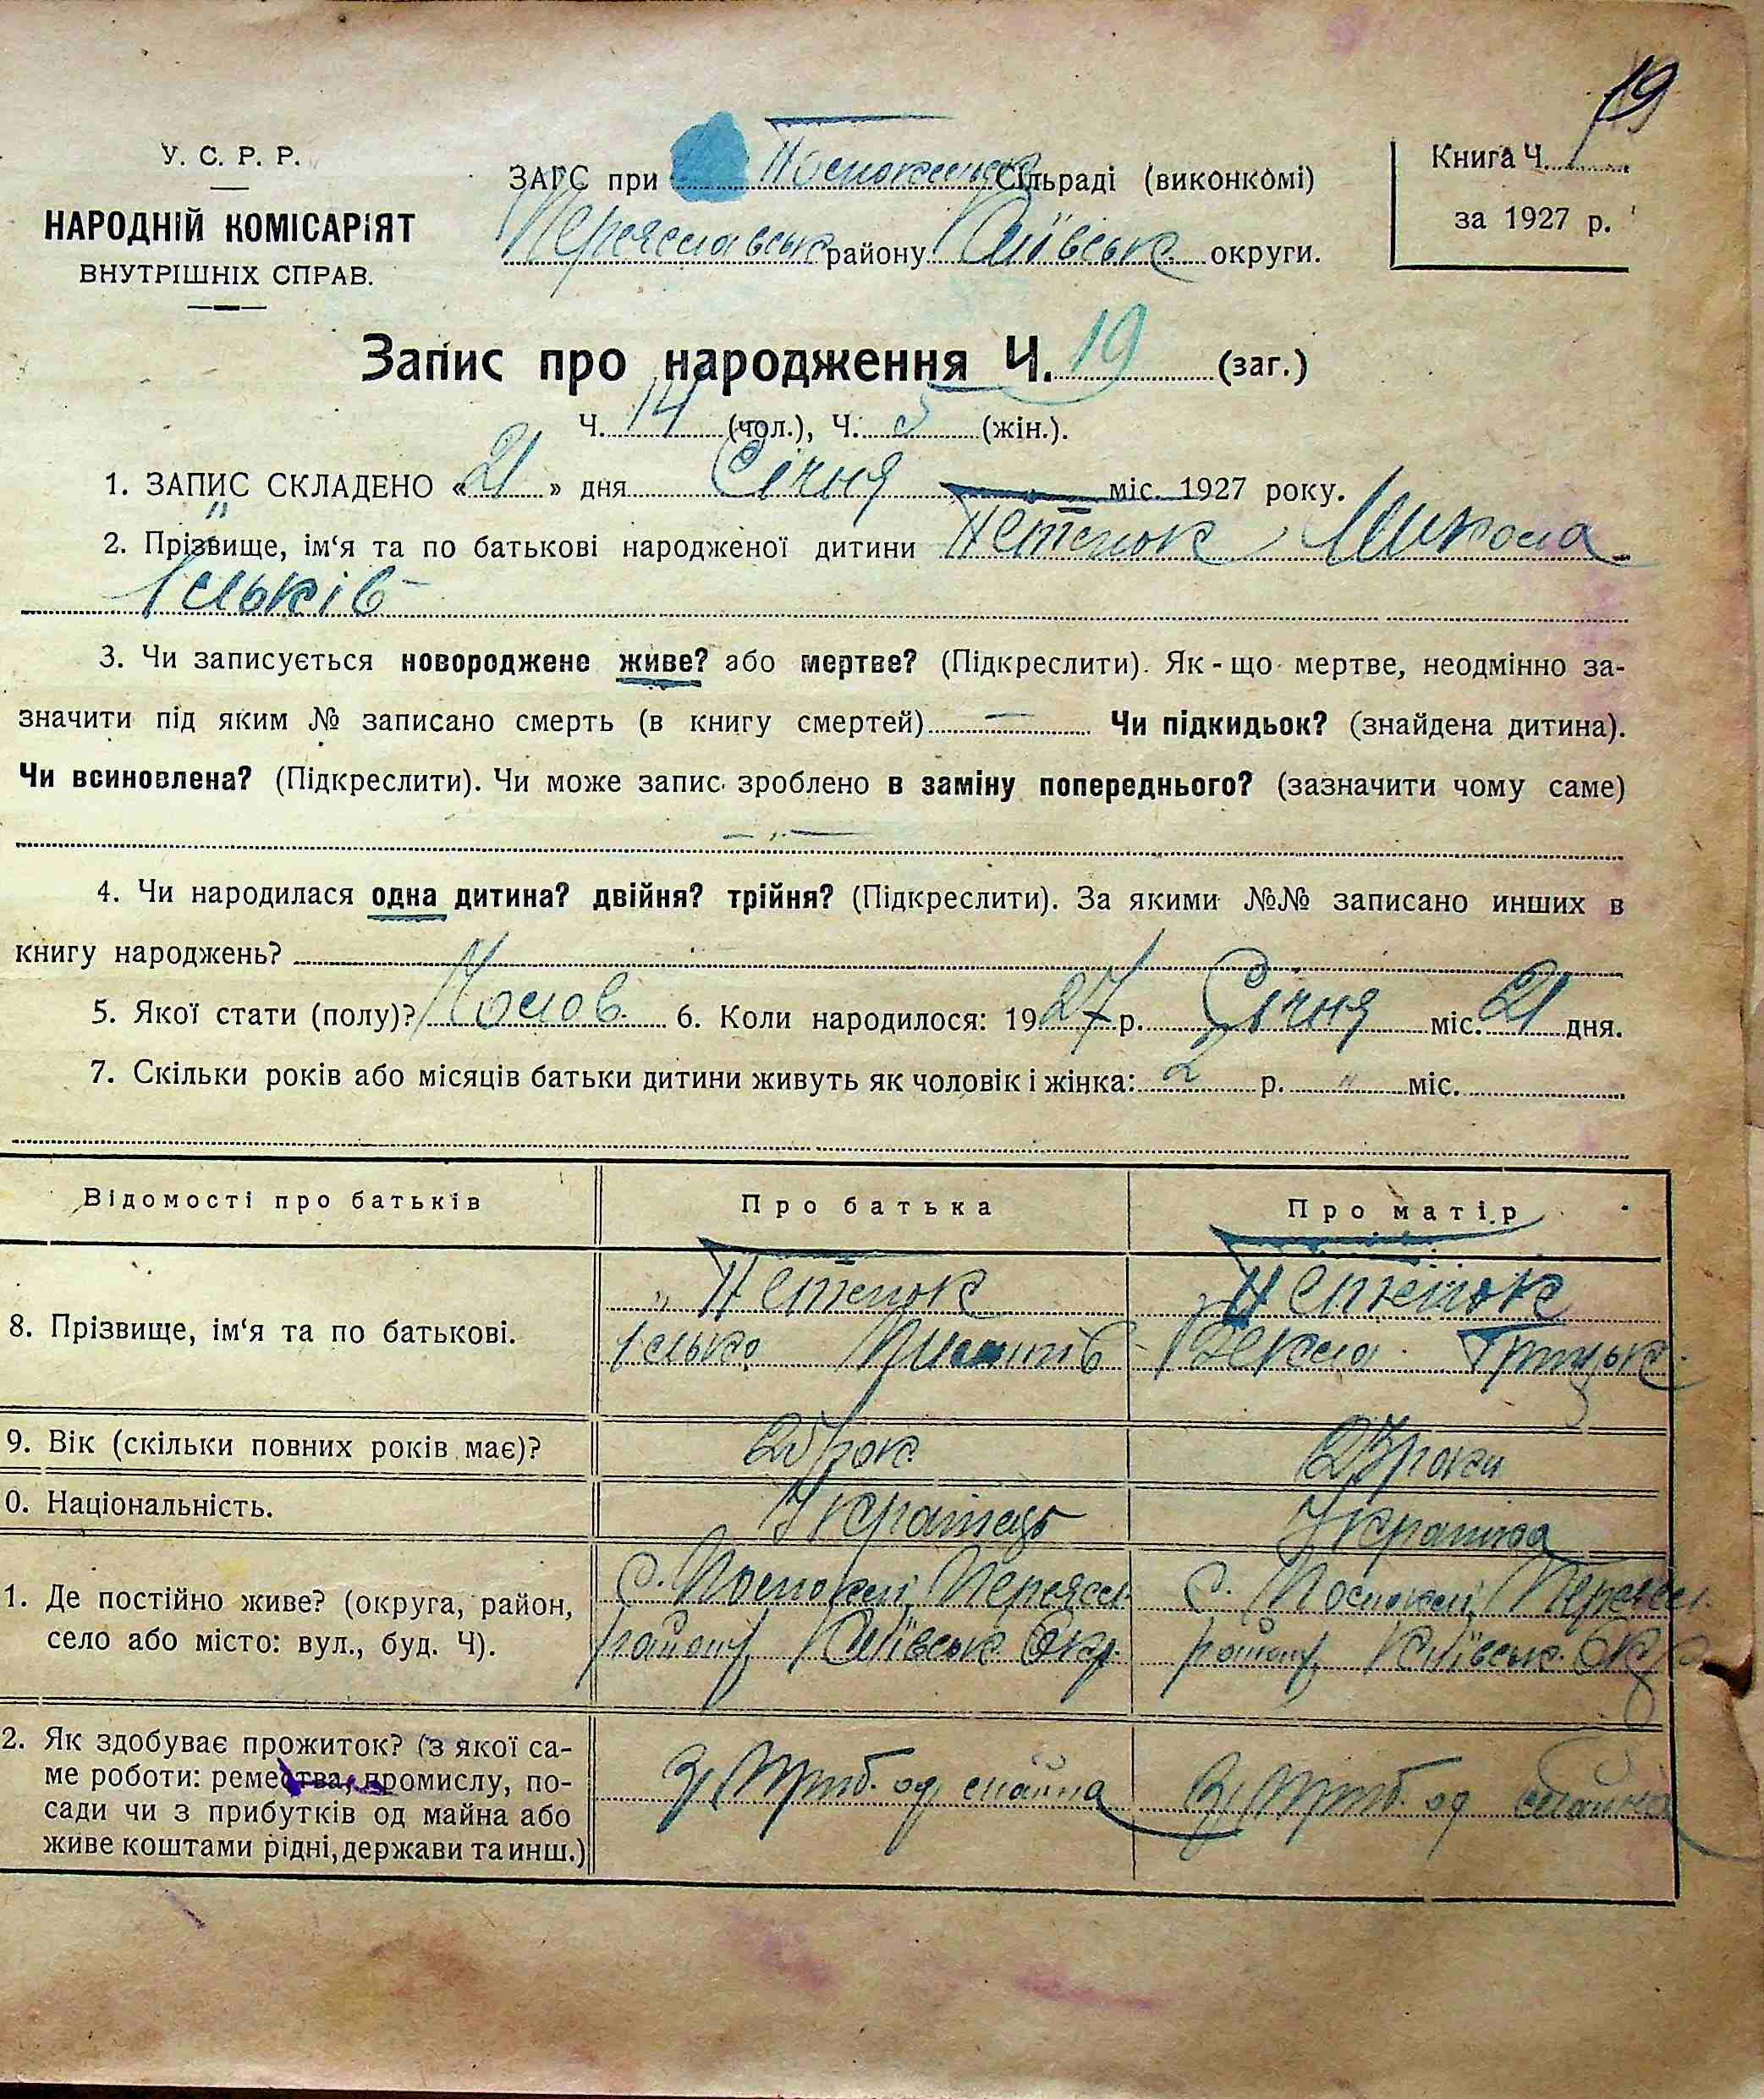 19
У. С. Р. Р.
НАРОДНІЙ КОМІСАРІЯТ
ВНУТРІШНІХ СПРАВ.
ЗАГС при Сільраді (виконкомі)
Переяславськ району Київськ округи.
Книга Ч.
за 1927 р.
Запис про народження Ч. 19 (заг.)
Ч. 14 (чол.), Ч. 5 (жін.).
1. ЗАПИС СКЛАДЕНО « 21 » дня Січня міс. 1927 року.
2. Прізвище, ім‘я та по батькові народженої дитини Микола
Ільків
3. Чи записується новороджене живе? або мертве? (Підкреслити). Як - що мертве, неодмінно за-
значити під яким № записано смерть (в книгу смертей) — Чи підкидьок? (знайдена дитина).
Чи всиновлена? (Підкреслити). Чи може запис зроблено в заміну попереднього? (зазначити чому саме)
— „ —
4. Чи народилася одна дитина? двійня? трійня? (Підкреслити). За якими №№ записано инших в
книгу народжень?
5. Якої стати (полу)? Чолов. 6. Коли народилося: 1927 р. Січня міс. 21 дня.
7. Скільки років або місяців батьки дитини живуть як чоловік і жінка: 2 р. „ міс.
Відомості про батьків Про батька Про матір
8. Прізвище, ім‘я та по батькові.
Ілько Векла Грицьк.
9. Вік (скільки повних років має)? 25 рок. 23 роки
0. Національність. Українець Українка
1. Де постійно живе? (округа, район, с. Переясл. с. Переясл.
село або місто: вул., буд. Ч). району Київськ. Окр. району Київськ. Окр.
2. Як здобуває прожиток? (з якої са-
ме роботи: ремества, промислу, по-
сади чи з прибутків од майна або
живе коштами рідні, держави та инш.)
З приб. од майна З приб. од майна